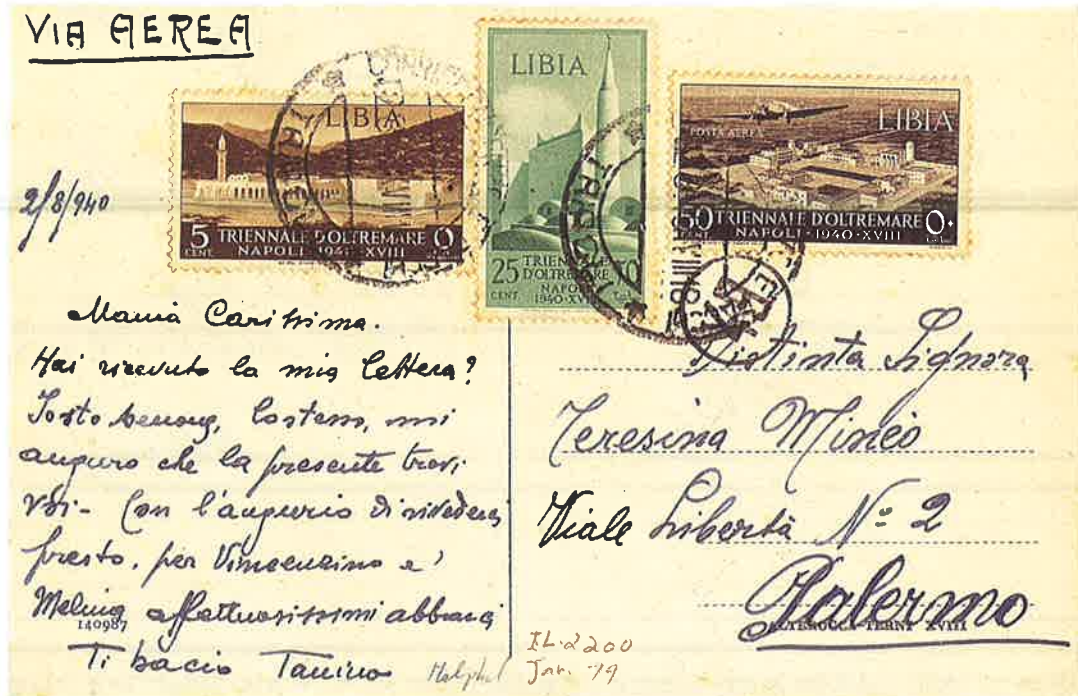 VIA AEREA
LIBIA
5 CENT. TRIENNALE D'OLTREMARE
NAPOLI · 1940 · XVIII
LIBIA
25 CENT TRIENNALE
D'OLTREMARE
NAPOLI
1940-XVIII
POSTA AEREA LIBIA
50 CENT. TRIENNALE D'OLTREMARE
NAPOLI · 1940 · XVIII
2/8/940
Mamà Carissima.
Hai ricevuto la mia lettera?
Io sto benone, lo stesso, mi
auguro che la presente trovi
voi - Con l'augurio di rivederci
presto, per Vincenzino e
affettuosissimi abbracci
Ti bacio Tanino
140987
Distinta Signora
Teresina Mineo
Viale Libertà N= 2
Palermo
TERNI XVIII
IL.2200
Jan. '79